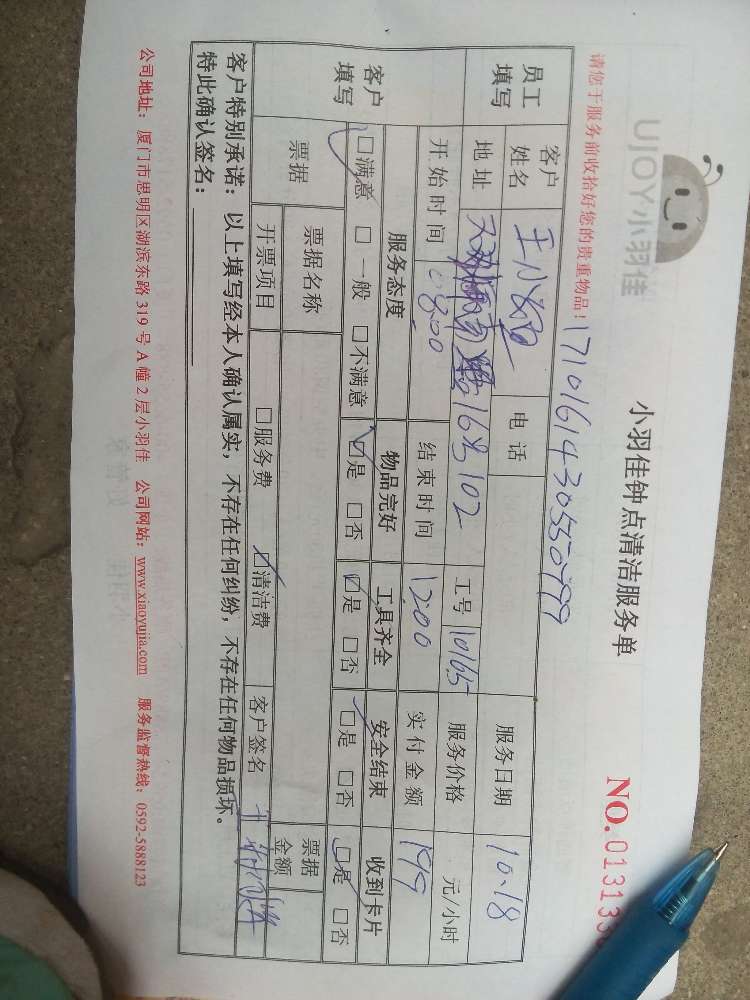 UJOY小羽佳
小羽佳钟点清洁服务单
NO.013133
请您于服务前收拾好您的贵重物品！
17101614305550799
员工填写
客户姓名 王小
电话
服务日期 10.18
地址 168,102
工号 10165
服务价格 元/小时
开始时间 0800
结束时间 1200
实付金额 199
客户填写
服务态度 物品完好 工具齐全 安全结束 收到卡片
□满意 □一般 □不满意 □是 □否 □是 □否 □是 □否 □是 □否
票据
票据名称
票据金额
开票项目 □服务费 □清洁费 客户签名
客户特别承诺：以上填写经本人确认属实，不存在任何纠纷，不存在任何物品损坏。
特此确认签名：
公司地址：厦门市思明区湖滨东路 319 号 A 幢 2 层小羽佳 公司网站：www.xiaoyujia.com 服务监督热线：0592-5888123